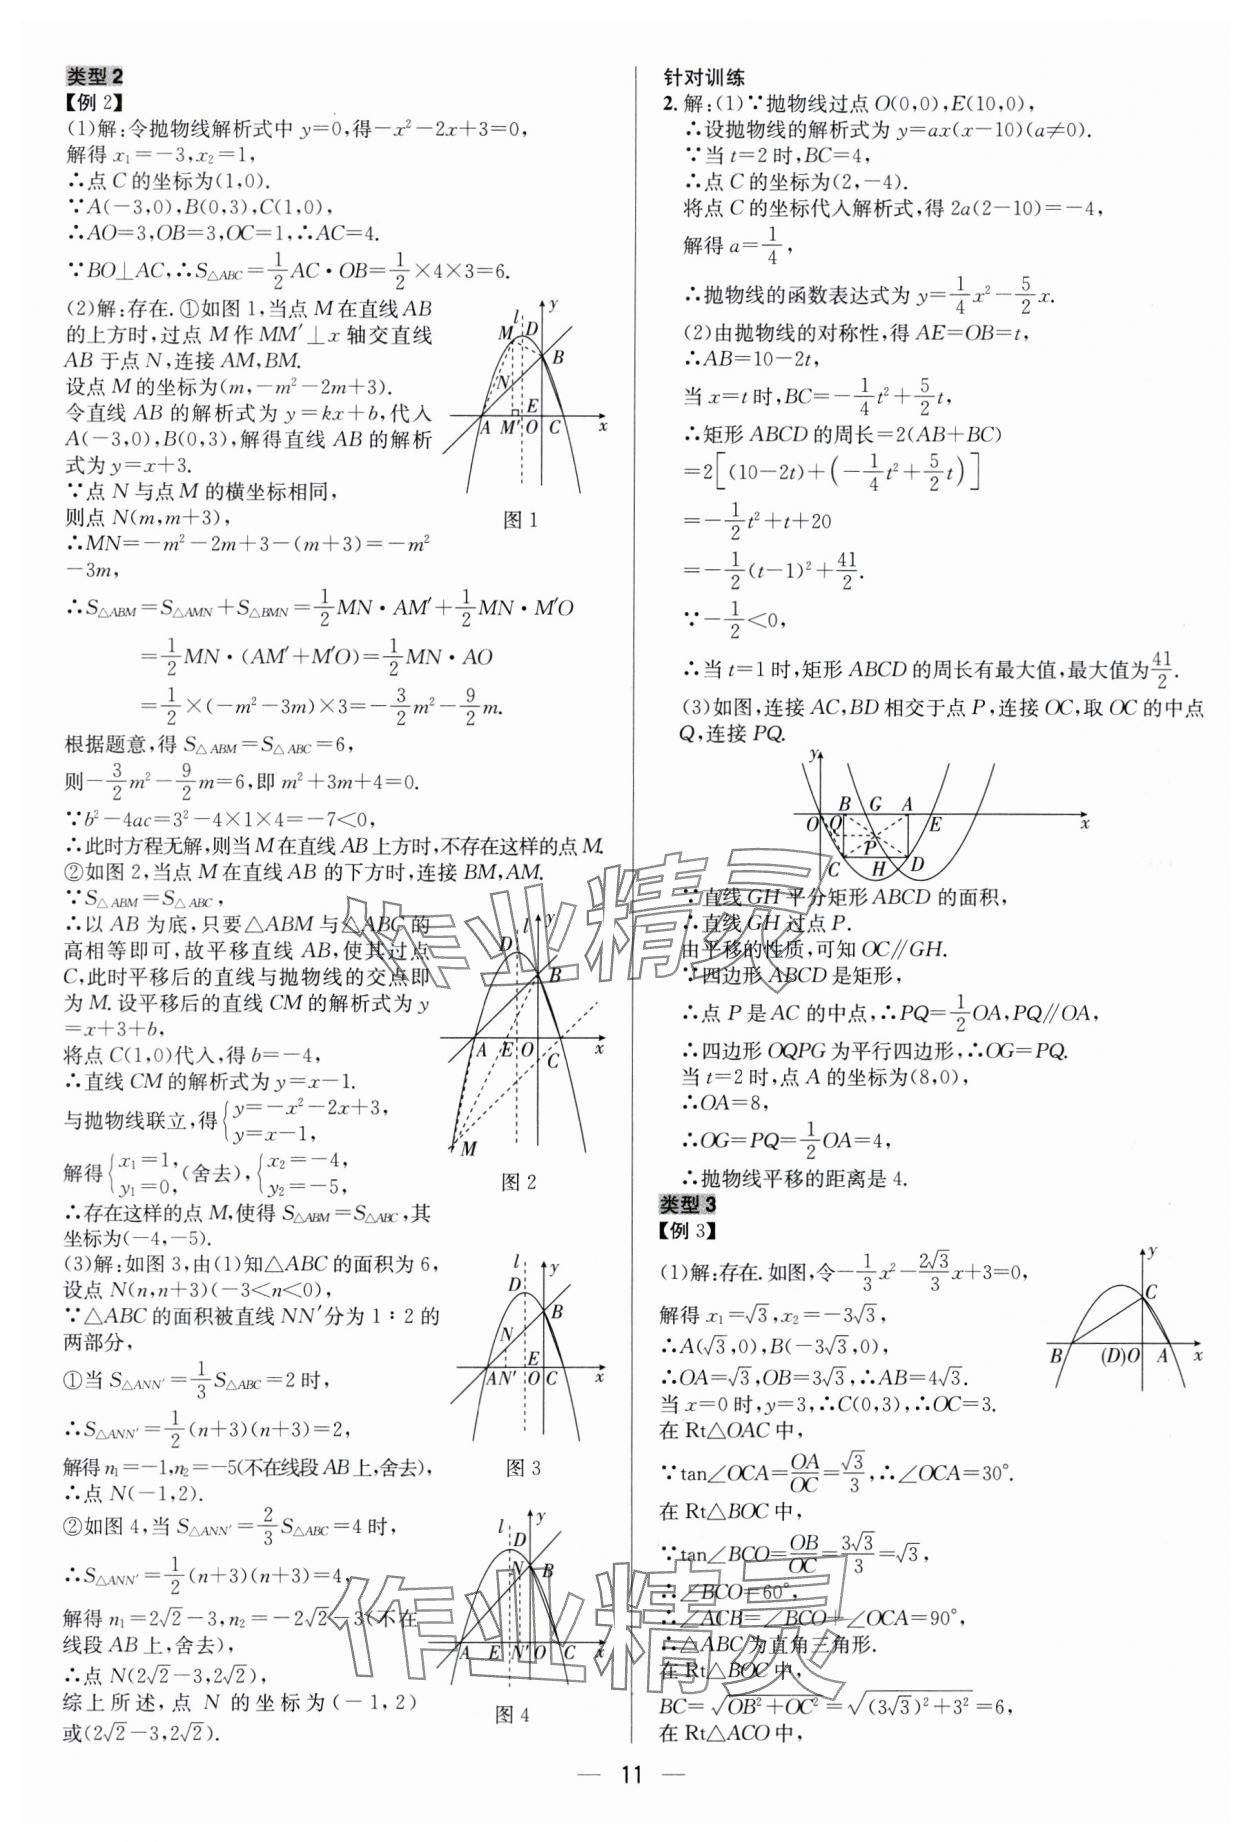 类型2
【例2】
(1)解:令抛物线解析式中 y=0,得-x²-2x+3=0,
解得 x₁=-3,x₂=1,
∴点 C 的坐标为(1,0).
∵A(-3,0),B(0,3),C(1,0),
∴AO=3,OB=3,OC=1,∴AC=4.
∵BO⊥AC,∴S△ABC=1/2AC·OB=1/2×4×3=6.
(2)解:存在.①如图 1,当点 M 在直线 AB
的上方时,过点 M 作 MM′⊥x 轴交直线
AB 于点 N,连接 AM,BM.
设点 M 的坐标为(m,-m²-2m+3).
令直线 AB 的解析式为 y=kx+b,代入
A(-3,0),B(0,3),解得直线 AB 的解析
式为 y=x+3.
∵点 N 与点 M 的横坐标相同,
则点 N(m,m+3),
∴MN=-m²-2m+3-(m+3)=-m²
-3m,
l D y M B N E A M′ O C x
图 1
∴S△ABM=S△AMN+S△BMN=1/2MN·AM′+1/2MN·M′O
=1/2MN·(AM′+M′O)=1/2MN·AO
=1/2×(-m²-3m)×3=-3/2m²-9/2m.
根据题意,得 S△ABM=S△ABC=6,
则-3/2m²-9/2m=6,即 m²+3m+4=0.
∵b²-4ac=3²-4×1×4=-7<0,
∴此时方程无解,则当 M 在直线 AB 上方时,不存在这样的点 M.
②如图 2,当点 M 在直线 AB 的下方时,连接 BM,AM.
∵S△ABM=S△ABC,
∴以 AB 为底,只要△ABM 与△ABC 的
高相等即可,故平移直线 AB,使其过点
C,此时平移后的直线与抛物线的交点即
为 M.设平移后的直线 CM 的解析式为 y
=x+3+b,
将点 C(1,0)代入,得 b=-4,
∴直线 CM 的解析式为 y=x-1.
与抛物线联立,得{y=-x²-2x+3, y=x-1,
解得{x₁=1, y₁=0,(舍去),{x₂=-4, y₂=-5,
∴存在这样的点 M,使得 S△ABM=S△ABC,其
坐标为(-4,-5).
l y D B A E O C x M
图 2
(3)解:如图 3,由(1)知△ABC 的面积为 6,
设点 N(n,n+3)(-3<n<0),
∵△ABC 的面积被直线 NN′分为 1∶2 的
两部分,
①当 S△ANN′=1/3S△ABC=2 时,
∴S△ANN′=1/2(n+3)(n+3)=2,
解得 n₁=-1,n₂=-5(不在线段 AB 上,舍去),
∴点 N(-1,2).
l y D B N E A N′ O C x
图 3
②如图 4,当 S△ANN′=2/3S△ABC=4 时,
∴S△ANN′=1/2(n+3)(n+3)=4,
解得 n₁=2√2-3,n₂=-2√2-3(不在
线段 AB 上,舍去),
∴点 N(2√2-3,2√2),
综上所述,点 N 的坐标为(-1,2)
或(2√2-3,2√2).
l y D N B A E N′ O C x
图 4
针对训练
2.解:(1)∵抛物线过点 O(0,0),E(10,0),
∴设抛物线的解析式为 y=ax(x-10)(a≠0).
∵当 t=2 时,BC=4,
∴点 C 的坐标为(2,-4).
将点 C 的坐标代入解析式,得 2a(2-10)=-4,
解得 a=1/4,
∴抛物线的函数表达式为 y=1/4x²-5/2x.
(2)由抛物线的对称性,得 AE=OB=t,
∴AB=10-2t,
当 x=t 时,BC=-1/4t²+5/2t,
∴矩形 ABCD 的周长=2(AB+BC)
=2[(10-2t)+(-1/4t²+5/2t)]
=-1/2t²+t+20
=-1/2(t-1)²+41/2.
∵-1/2<0,
∴当 t=1 时,矩形 ABCD 的周长有最大值,最大值为41/2.
(3)如图,连接 AC,BD 相交于点 P,连接 OC,取 OC 的中点
Q,连接 PQ.
y B G A O Q E x P C H D
∵直线 GH 平分矩形 ABCD 的面积,
∴直线 GH 过点 P.
由平移的性质,可知 OC∥GH.
∵四边形 ABCD 是矩形,
∴点 P 是 AC 的中点,∴PQ=1/2OA,PQ∥OA,
∴四边形 OQPG 为平行四边形,∴OG=PQ.
当 t=2 时,点 A 的坐标为(8,0),
∴OA=8,
∴OG=PQ=1/2OA=4,
∴抛物线平移的距离是 4.
类型3
【例3】
(1)解:存在.如图,令-1/3x²-2√3/3x+3=0,
解得 x₁=√3,x₂=-3√3,
∴A(√3,0),B(-3√3,0),
∴OA=√3,OB=3√3,∴AB=4√3.
当 x=0 时,y=3,∴C(0,3),∴OC=3.
y C B (D)O A x
在 Rt△OAC 中,
∵tan∠OCA=OA/OC=√3/3,∴∠OCA=30°.
在 Rt△BOC 中,
∵tan∠BCO=OB/OC=3√3/3=√3,
∴∠BCO=60°,
∴∠ACB=∠BCO+∠OCA=90°,
∴△ABC 为直角三角形.
在 Rt△BOC 中,
BC=√(OB²+OC²)=√((3√3)²+3²)=6,
在 Rt△ACO 中,
— 11 —
作业精灵
作业精灵